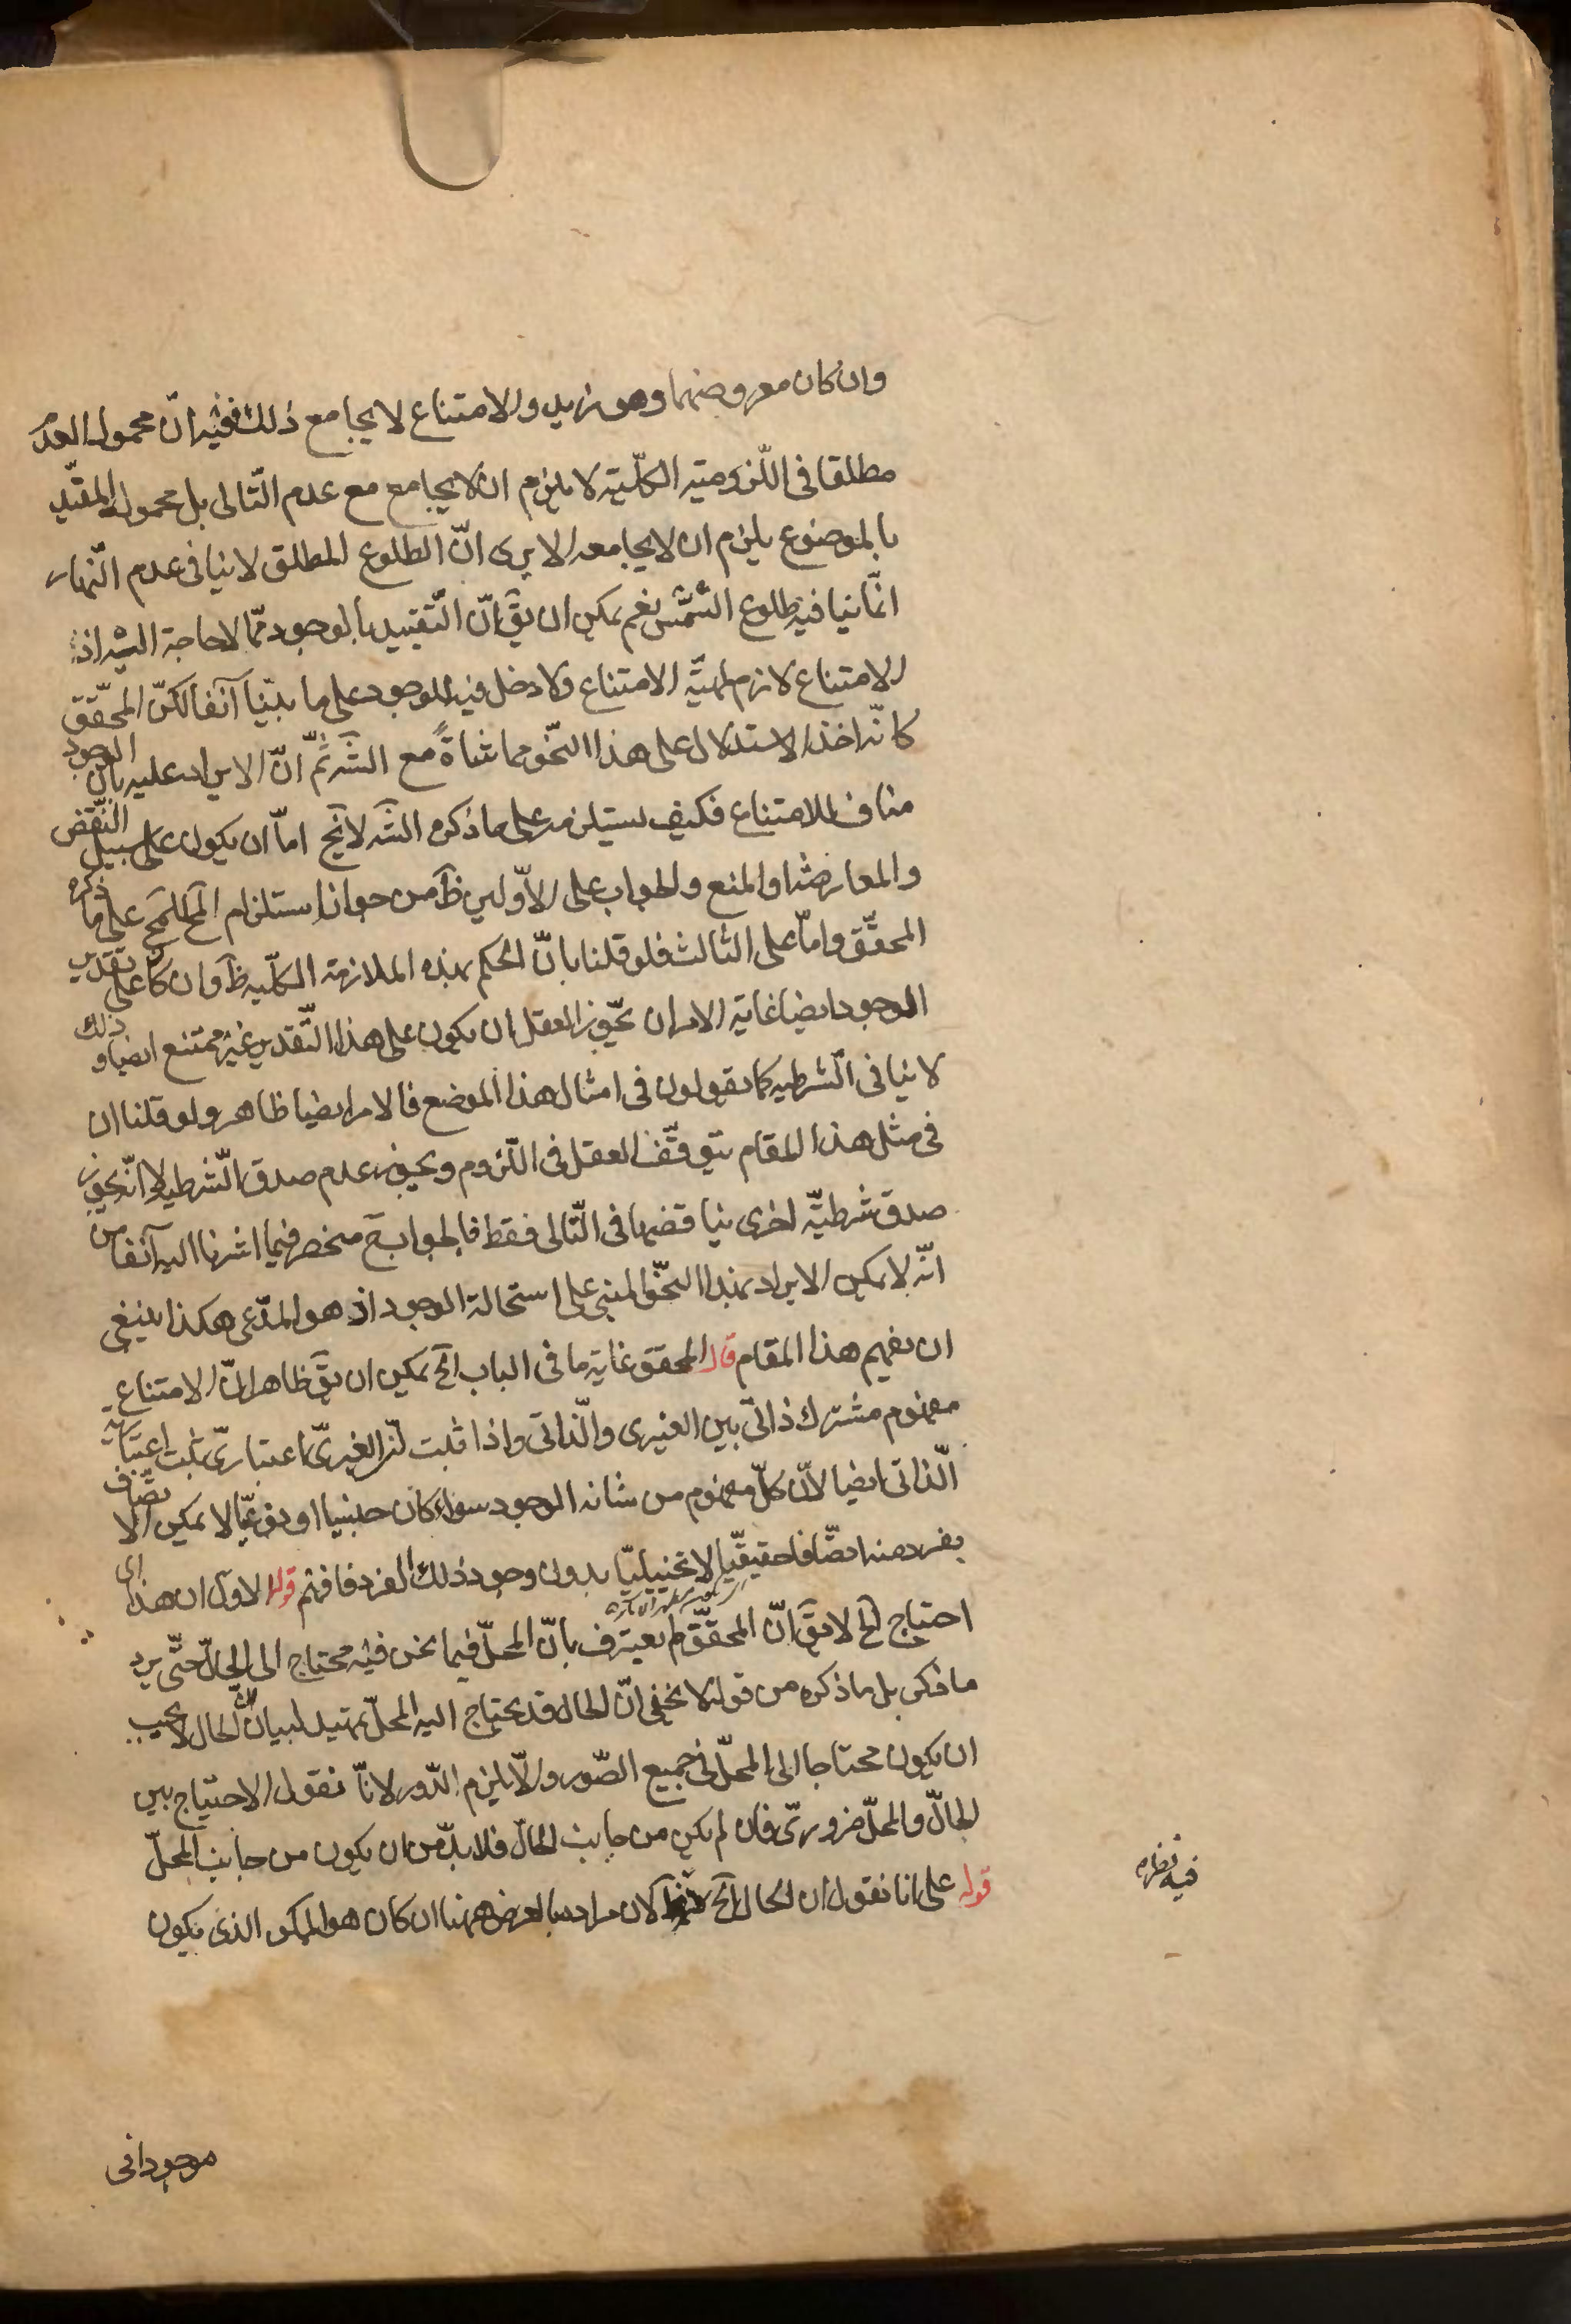 وان كان معروضهما وهو زيد والامتناع لا يجامع ذلك ففيه انّ محمول المقدّم
مطلقا فى اللّزوميّة الكلّية لا يلزم ان لا يجامع مع عدم التّالى بل محموله المقيّد
بالموضوع يلزم ان لا يجامعه الا يرى انّ الطلوع المطلق لا ينافى عدم النّهار
انّما ينافيه طلوع الشّمس نعم يمكن ان يق انّ التّقييد بالوجود ممّا لا حاجة اليه اذ
الامتناع لازم لمهيّة الامتناع ولا دخل فيه للوجود على ما بيّنا آنفا لكنّ المحقّق
كانّه اخذ الاستدلال على هذا النّحو مماشاةً مع الشّه ثمّ انّ الايراد عليه بانّ الوجود
مناف للامتناع فكيف يستلزمه على ما ذكره الشّه لا يخ امّا ان يكون على سبيل النّقض
والمعارضة او المنع والجواب على الاوّلين ظ من جواز استلزام المح للمح على ما ذكره
المحقّق وامّا على الثالث فلو قلنا بانّ الحكم بهذه الملازمة الكلّيه ظ وان كا على تقدير
الوجود ايضا غاية الامر ان يجّوز العقل ان يكون على هذا التّقدير غير ممتنع ايضا وذلك
لا ينافى الشّرطيه كما يقولون فى امثال هذا الموضع فالامر ايضا ظاهر ولو قلنا ان
فى مثل هذا المقام يتوقّف العقل فى اللّزوم ويجوز عدم صدق الشّرطيه لا انّه يجوز
صدق شرطيّة اخرى يناقضها فى التّالى فقط فالجواب ح منحصر فيما اشرنا اليه آنفا من
انّه لا يمكن الايراد بهذا النّحو المبنى على استحالة الوجود اذ هو المدّعى هكذا ينبغى
ان يفهم هذا المقام قال المحقق غاية ما فى الباب الخ يمكن ان يق ظاهرا انّ الامتناع
مفهوم مشترك ذاتىّ بين الغيرى والذّاتى واذا ثبت انّ الغيرىّ اعتبارىّ يثبت اعتباريّة
الذّاتى ايضا لانّ كلّ مفهوم من شانه الوجود سواء كان جنسيا او نوعيّا لا يمكن الاتّصاف
بفرد منه اتصّافا حقيقّيا لا تخييليّا بدون وجود ذلك الفرد فافهم قوله الاول ان هذا اى
احتياج الخ لا يق انّ المحقّق لم يعترف بانّ المحلّ فيما نحن فيه محتاج الى الحالّ حتّى يرد
ما ذكر بل ما ذكره من قوله لا يخفى انّ الحال قد يحتاج اليه المحلّ تمهيد لبيان انّ الحال لا يجب
ان يكون محتاجا الى المحلّ فى جميع الصّور والّا يلزم الدّور لانّا نقول الاحتياج بين
الحالّ والمحلّ ضرورىّ فان لم يكن من جانب الحالّ فلا بدّ من ان يكون من جانب المحلّ
قوله على انا نقول ان الحال الخ لان مراده بالعرض ههنا ان كان هو الممكن الذى يكون
فيه نظر
موجودا فى